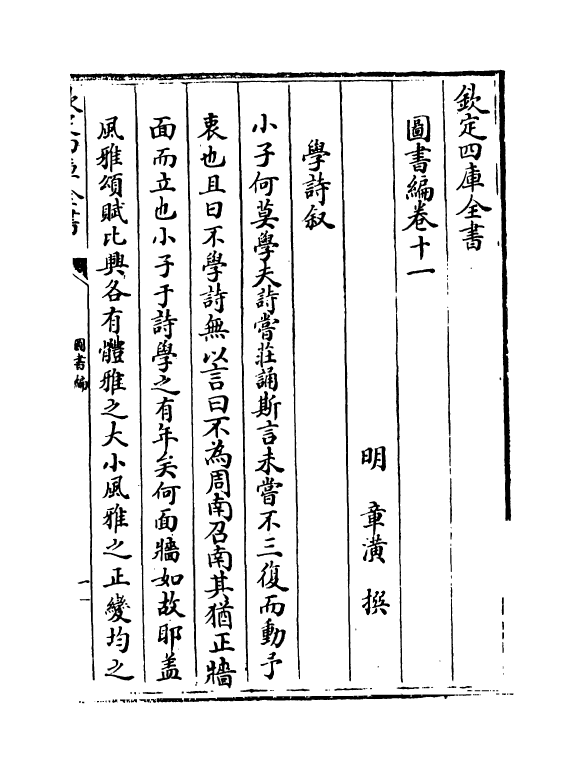 欽定四庫全書
圖書編卷十一
明 章潢 撰
學詩叙
小子何莫學夫詩嘗莊誦斯言未嘗不三復而動予
衷也且曰不學詩無以言曰不為周南召南其猶正牆
面而立也小子于詩學之有年矣何面牆如故耶盖
風雅頌賦比興各有體雅之大小風雅之正變均之
欽定四庫全書
圖書編
一